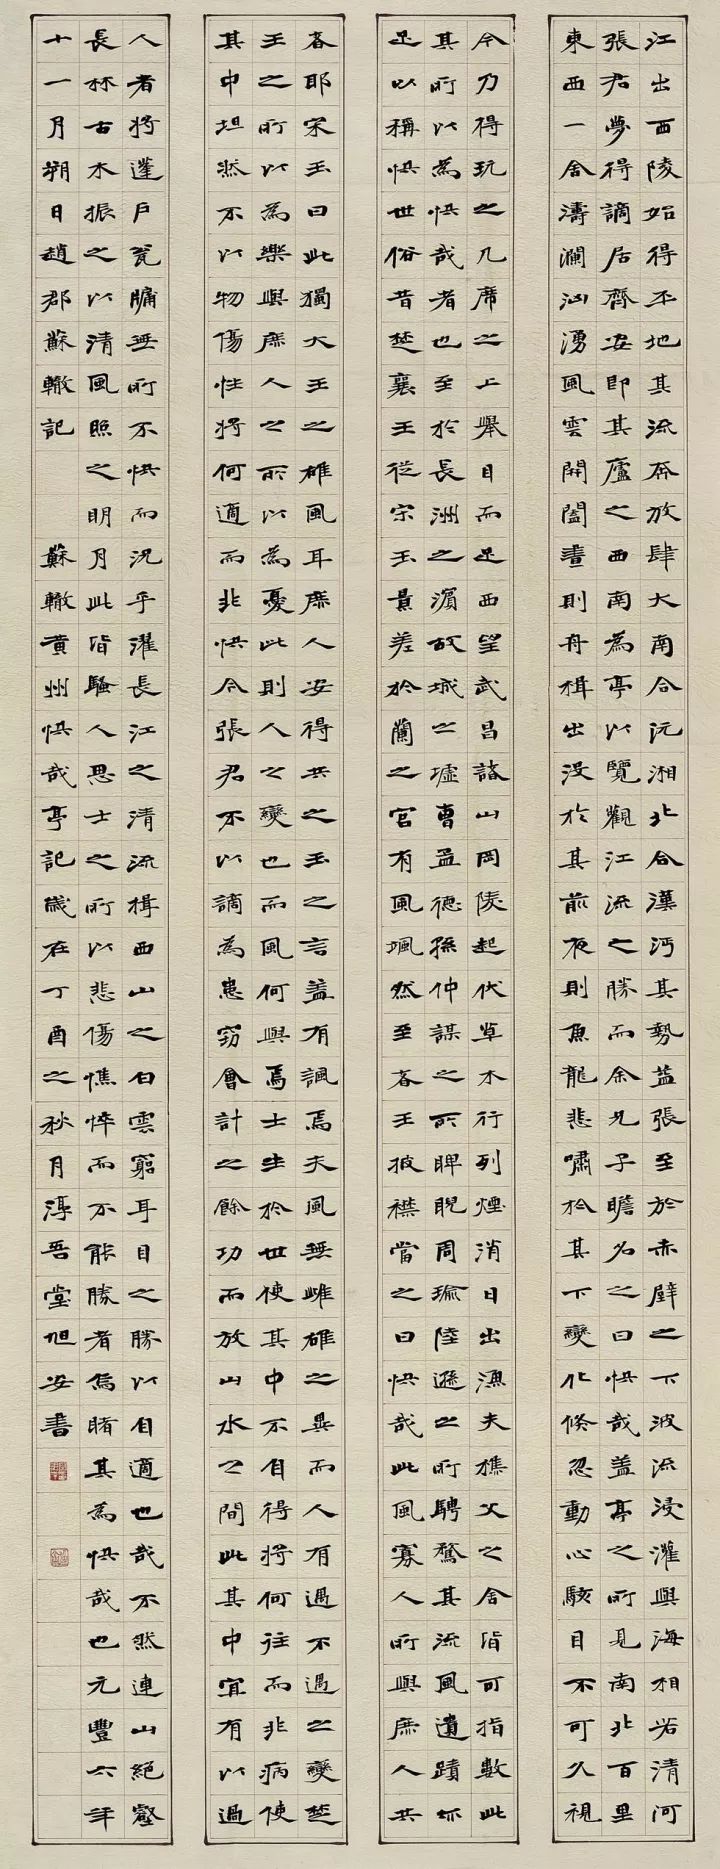 江出西陵始得平地其流奔放肆大南合沅湘北合漢沔其勢益張至於赤壁之下波流浸灌與海相若清河
張君夢得謫居齊安即其廬之西南為亭以覽觀江流之勝而余兄子瞻名之曰快哉蓋亭之所見南北百里
東西一舍濤瀾洶湧風雲開闔晝則舟楫出沒於其前夜則魚龍悲嘯於其下變化倏忽動心駭目不可久視
今乃得玩之几席之上舉目而足西望武昌諸山岡陵起伏草木行列煙消日出漁夫樵父之舍皆可指數此
其所以為快哉者也至於長洲之濱故城之墟曹孟德孫仲謀之所睥睨周瑜陸遜之所騁騖其流風遺蹟亦
足以稱快世俗昔楚襄王從宋玉景差於蘭之宮有風颯然至者王披襟當之曰快哉此風寡人所與庶人共
者耶宋玉曰此獨大王之雄風耳庶人安得共之玉之言蓋有諷焉夫風無雌雄之異而人有遇不遇之變楚
王之所以為樂與庶人之所以為憂此則人之變也而風何與焉士生於世使其中不自得將何往而非病使
其中坦然不以物傷性將何適而非快今張君不以謫為患窃會計之餘功而放山水之間此其中宜有以過
人者將蓬戶瓮牖無所不快而況乎濯長江之清流楫西山之白雲窮耳目之勝以自適也哉不然連山絕壑
長林古木振之以清風照之明月此皆騷人思士之所以悲傷憔悴而不能勝者烏睹其為快哉也元豐六年
十一月朔日趙郡蘇轍記 蘇轍黃州快哉亭記歲在丁酉之秋月淳吾堂旭安書